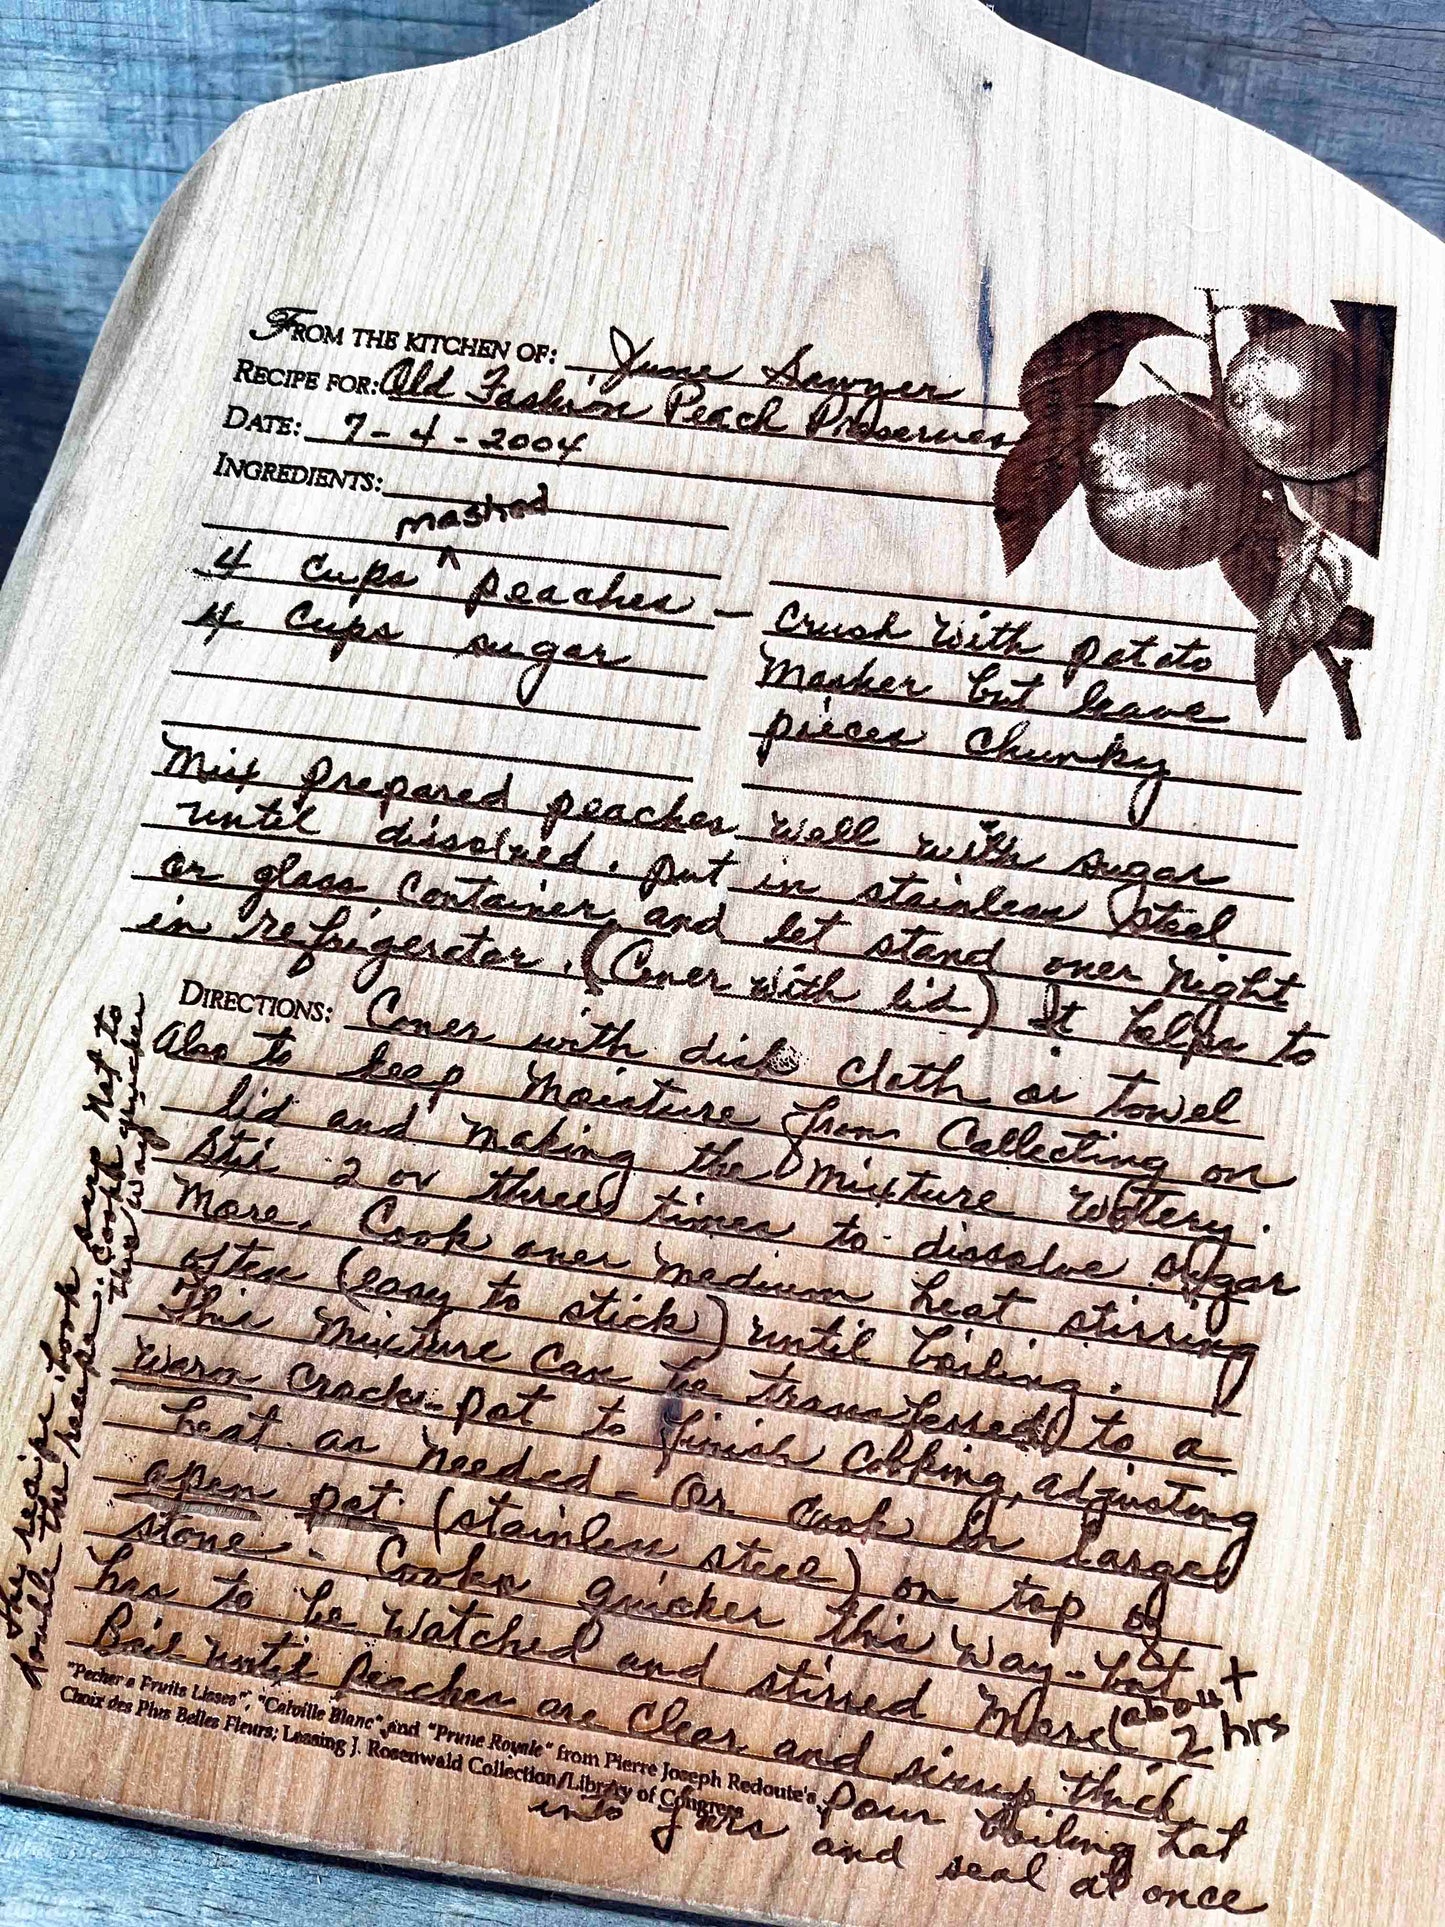 FROM THE KITCHEN OF: June Sawyer
RECIPE FOR: Old Fashion Peach Preserves
DATE: 7-4-2004
INGREDIENTS:
mashed
4 cups ^ peaches - crush with potato
4 cups sugar masher but leave
pieces chunky
Mix prepared peaches well with sugar
until dissolved. put in stainless steel
or glass container and let stand over night
in refrigerator. (Cover with lid) It helps to
DIRECTIONS: Cover with dish cloth or towel
Also to keep moisture from collecting on
lid and making the mixture watery.
Stir 2 or three times to dissolve sugar
more. Cook over medium heat stirring
often (easy to stick) until boiling.
This mixture can be transferred to a
warm crock-pot to finish cooking, adjusting
heat as needed - Or cook in large
open pot (stainless steel) on top of
stove - Cooks quicker this way - but
has to be watched and stirred more (about 2 hrs +
Boil until peaches are clear and sirup thick
Pour boiling hot
into jars and seal at once
"Pecher a Fruits Lisses", "Calville Blanc", and "Prune Royale" from Pierre Joseph Redoute's
Choix des Plus Belles Fleurs; Lessing J. Rosenwald Collection/Library of Congress
Key recipe: book says not to
double the recipe; cooks quicker
this way